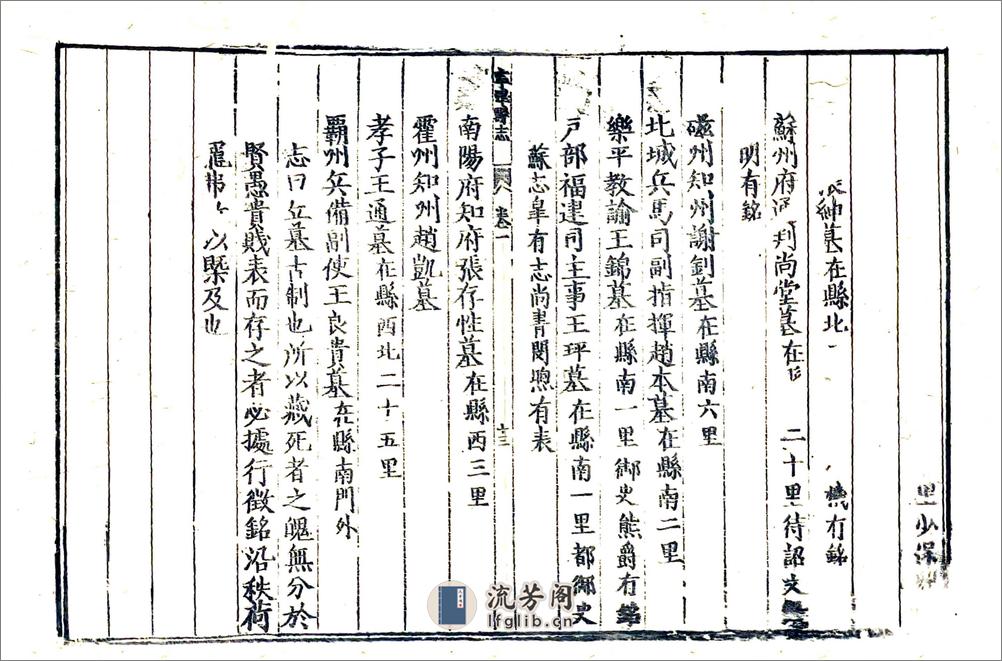 里少保
紳墓在縣北
機有銘
蘇州府通判尚堂墓在
二十里待詔文
明有銘
磁州知州謝釗墓在縣南六里
北城兵馬司副指揮趙本墓在縣南二里
樂平教諭王錦墓在縣南一里御史熊爵有銘
戶部福建司主事王玶墓在縣南一里都御史
蘇志臯有志尚書閔煦有表
縣志
卷一
十三
南陽府知府張存性墓在縣西三里
霍州知州趙凱墓
孝子王通墓在縣西北二十五里
覇州兵備副使王良貴墓在縣南門外
志曰丘墓古制也所以藏死者之魄無分於
賢愚貴賤表而存之者必據行徵銘沿秩荷
以槩及也
流芳阁
lfglib.cn